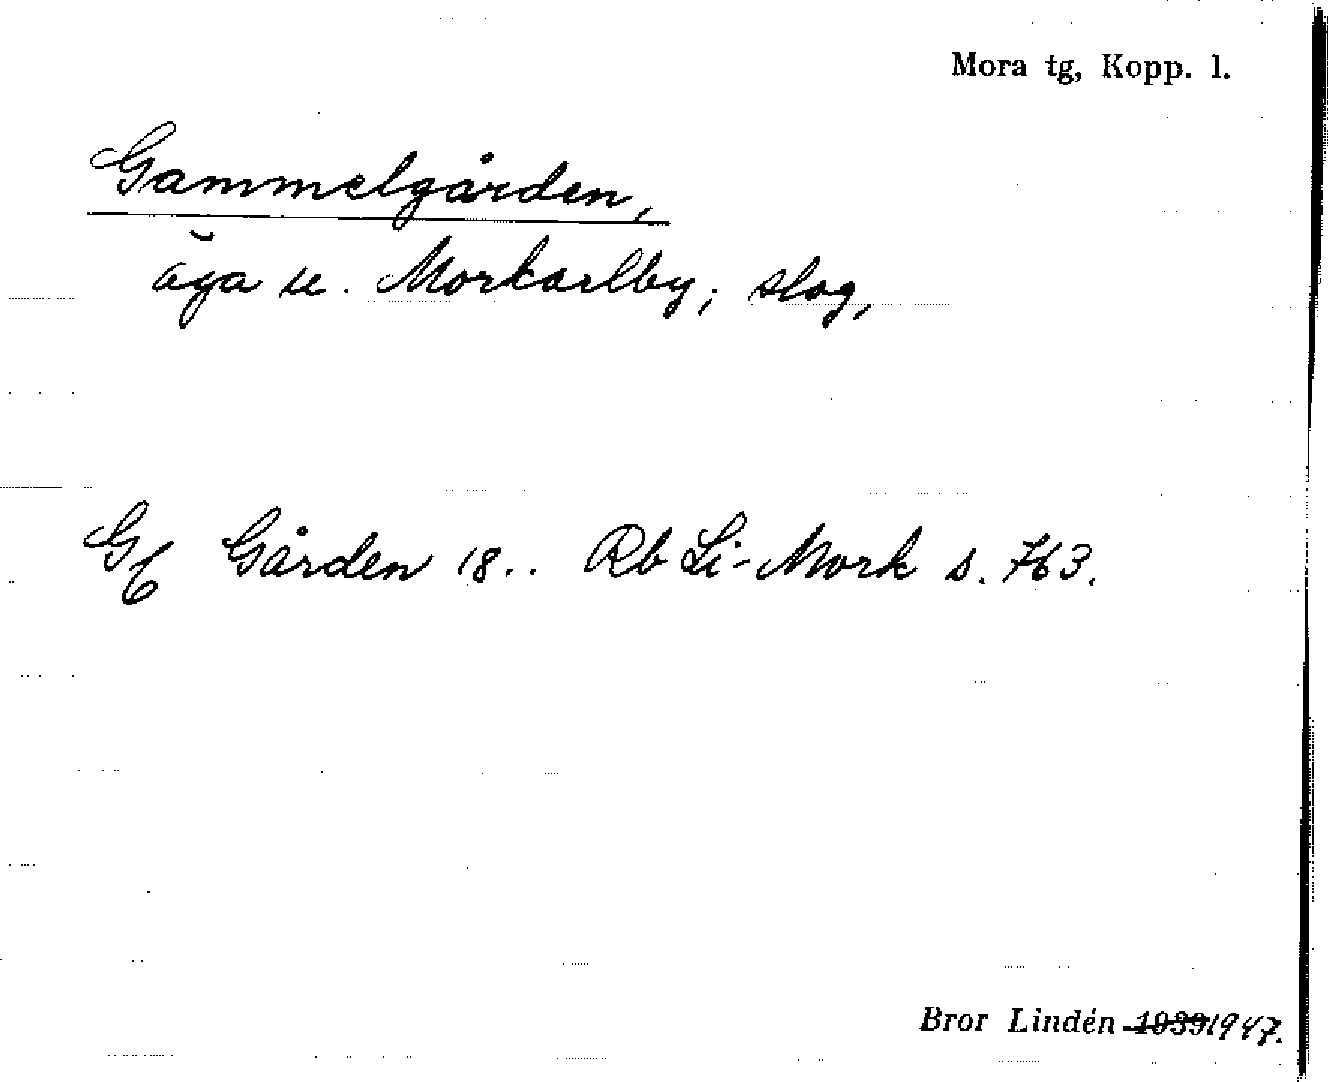 Mora tg, Kopp. l.
Gammelgården,
äga u. Morkarlby; slog,
Gården 18.. Rb Li-Mork s. 763.
Bror Lindén 1939 1947.